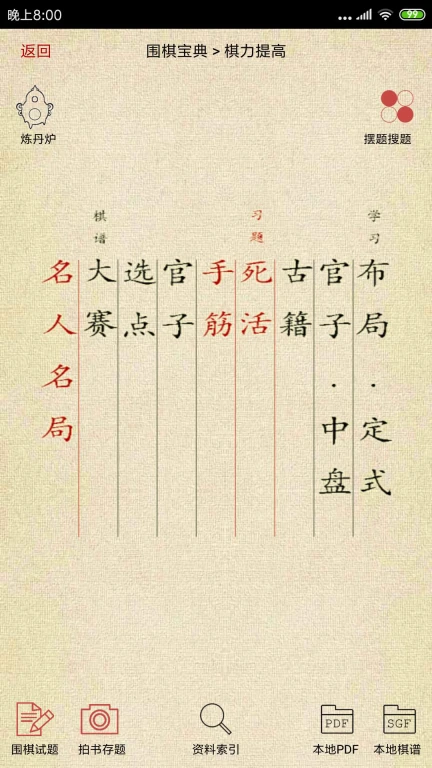 晚上8:00
99
返回
围棋宝典 > 棋力提高
炼丹炉
摆题搜题
学习
布局·定式
官子·中盘
古籍
习题
死活
手筋
官子
选点
棋谱
大赛
名人名局
围棋试题
拍书存题
资料索引
PDF
本地PDF
SGF
本地棋谱